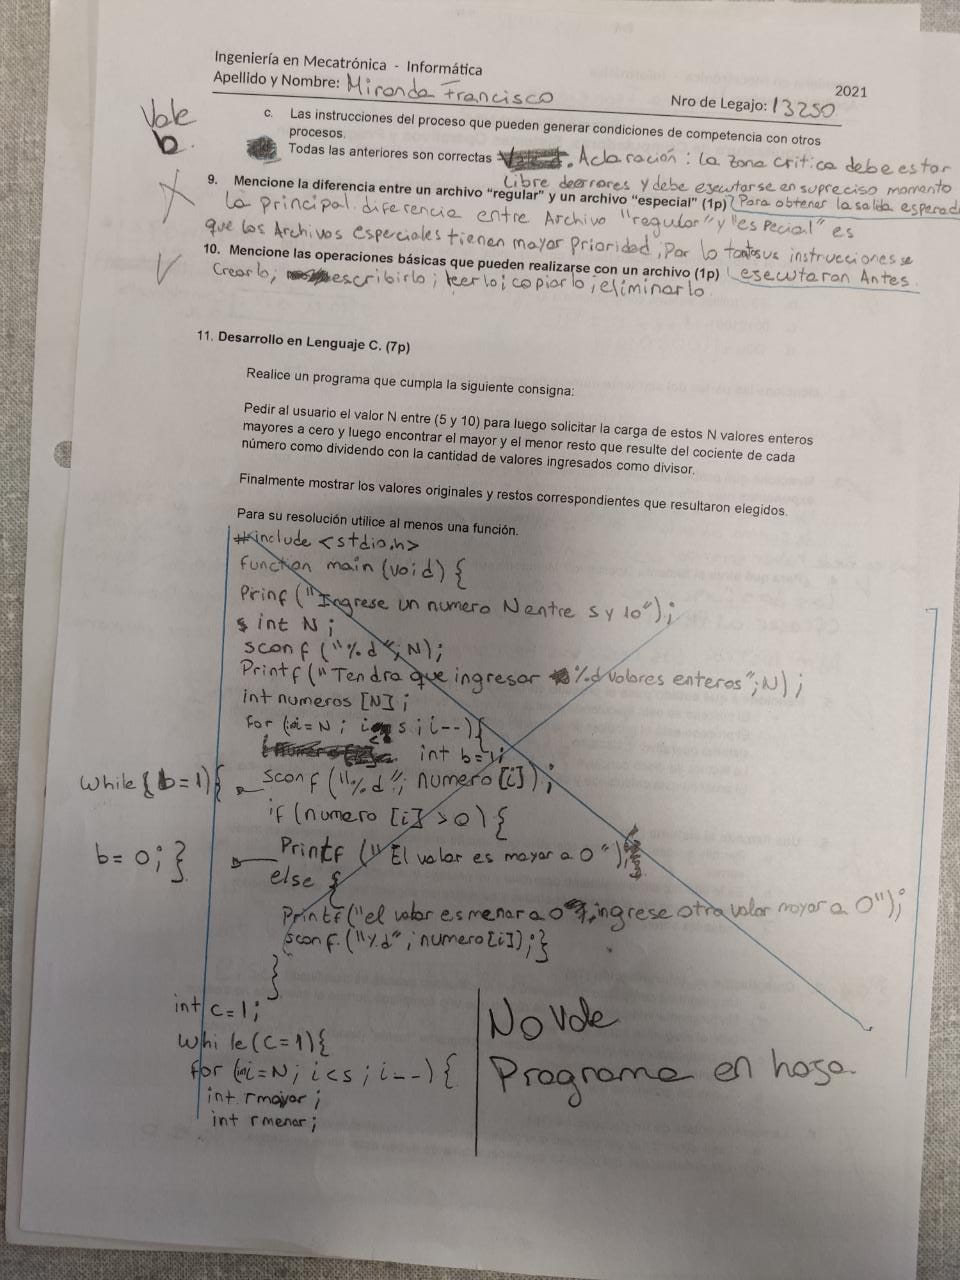 Ingeniería en Mecatrónica - Informática
2021
Apellido y Nombre: Miranda Francisco
Nro de Legajo: 13250
Vale
b.
c. Las instrucciones del proceso que pueden generar condiciones de competencia con otros
procesos.
Todas las anteriores son correctas . Aclaración: La zona critica debe estar
Libre de errores y debe ejecutarse en su preciso momento
9. Mencione la diferencia entre un archivo “regular” y un archivo “especial” (1p) Para obtener la salida esperada
La principal diferencia entre Archivo "regular" y "especial" es
que los Archivos especiales tienen mayor Prioridad, Por lo tanto sus instrucciones se
10. Mencione las operaciones básicas que pueden realizarse con un archivo (1p) esecutaran Antes.
Crearlo; escribirlo; leerlo; copiarlo; eliminarlo
11. Desarrollo en Lenguaje C. (7p)
Realice un programa que cumpla la siguiente consigna:
Pedir al usuario el valor N entre (5 y 10) para luego solicitar la carga de estos N valores enteros
mayores a cero y luego encontrar el mayor y el menor resto que resulte del cociente de cada
número como dividendo con la cantidad de valores ingresados como divisor.
Finalmente mostrar los valores originales y restos correspondientes que resultaron elegidos.
Para su resolución utilice al menos una función.
#include <stdio.h>
function main (void) {
Prinf ("Ingrese un numero N entre 5 y 10");
int N;
scanf ("%d"; N);
Printf ("Tendra que ingresar %d valores enteros"; N);
int numeros [N];
for (i=N; i 5; i--){
int b=1;
while{b=1){
scanf ("%d"; numero[i]);
if (numero [i] >0) {
b=0; }
Printf ("El valor es mayor a 0");
else {
Printf ("el valor es menor a 0, ingrese otro valor mayor a 0");
scanf ("%d"; numero[i]);}
}
int c=1;
while(c=1){
for (i=N; i<5; i--) {
int rmayor;
int rmenor;
No Vale
Programa en hoja.